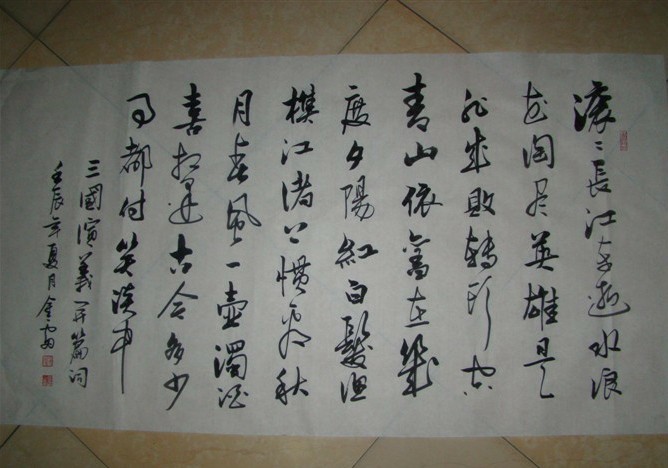 滚〻長江东逝水浪
花淘尽英雄是
非成敗轉头空
青山依舊在幾
度夕陽紅白髮渔
樵江渚上惯看秋
月春風一壶濁酒
喜相逢古今多少
事都付笑谈中
三國演義开篇词
壬辰年夏月金